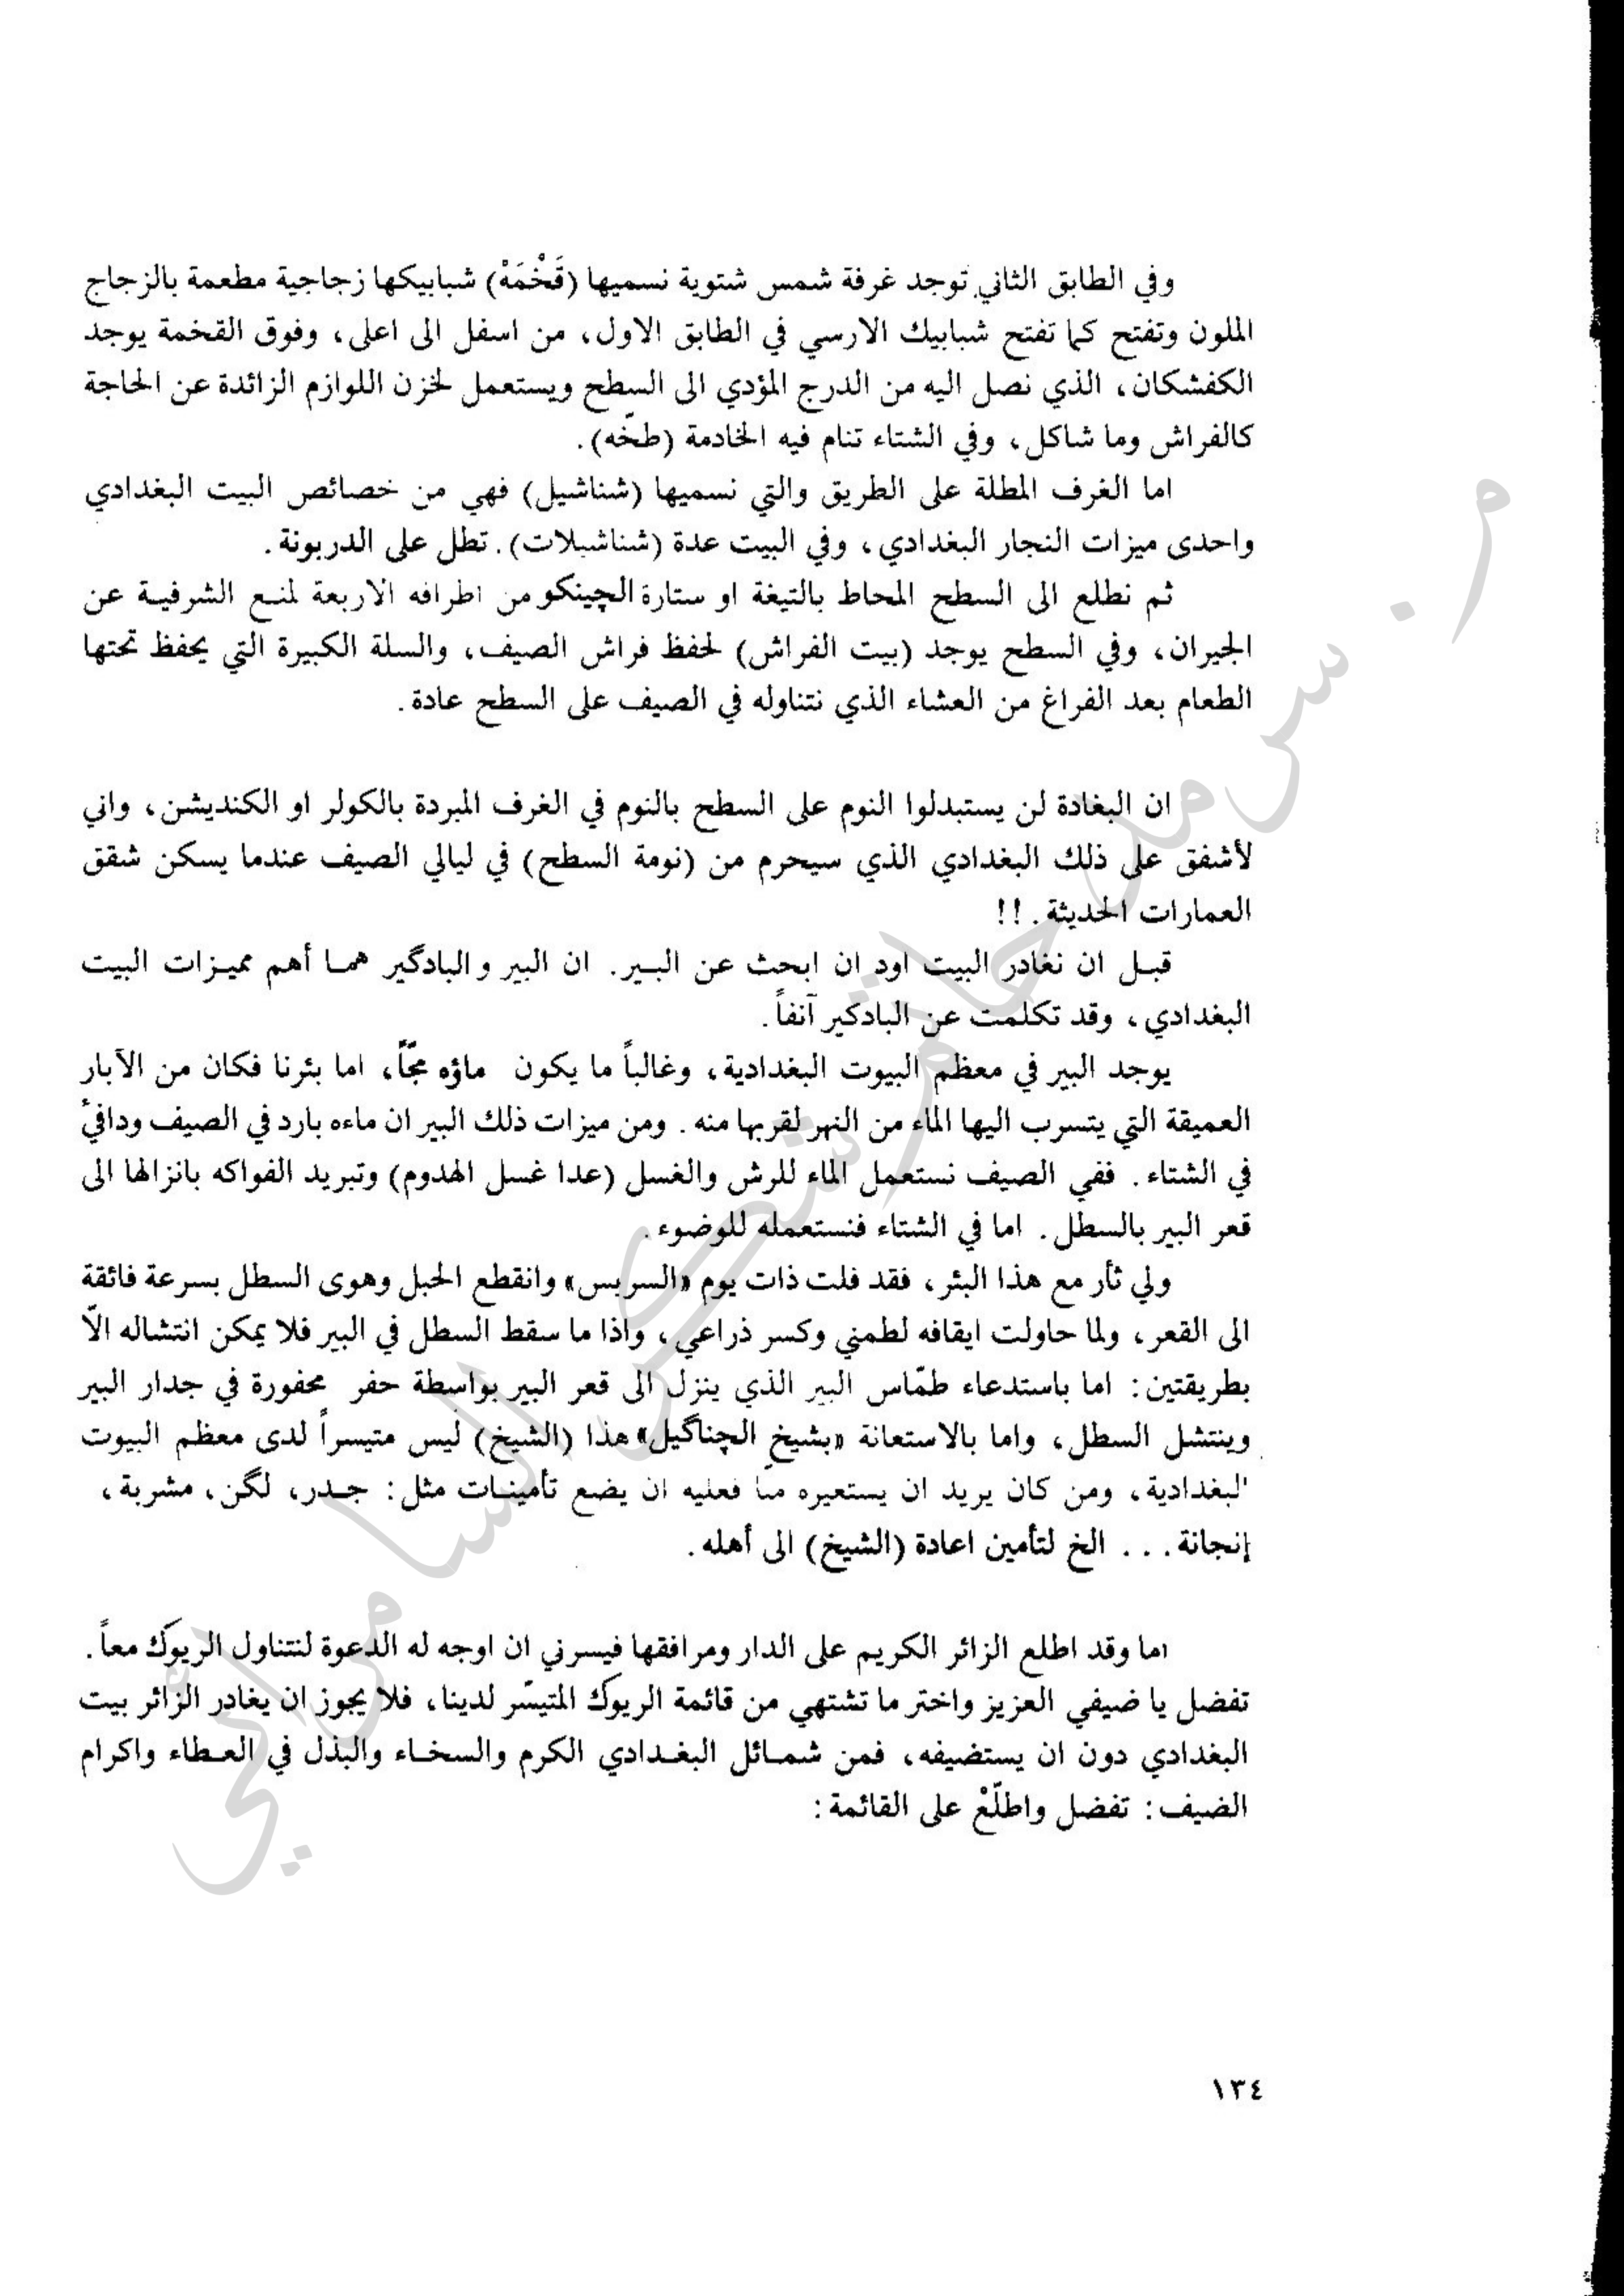 وفي الطابق الثاني توجد غرفة شمس شتوية نسميها (قَخْمَهْ) شبابيكها زجاجية مطعمة بالزجاج
الملون وتفتح كما تفتح شبابيك الارسي في الطابق الاول، من اسفل الى اعلى، وفوق القخمة يوجد
الكفشكان، الذي نصل اليه من الدرج المؤدي الى السطح ويستعمل لخزن اللوازم الزائدة عن الحاجة
كالفراش وما شاكل، وفي الشتاء تنام فيه الخادمة (طخّه).
اما الغرف المطلة على الطريق والتي نسميها (شناشيل) فهي من خصائص البيت البغدادي
واحدى ميزات النجار البغدادي، وفي البيت عدة (شناشيلات). تطل على الدربونة.
ثم نطلع الى السطح المحاط بالتيغة او ستارة الچينكو من اطرافه الاربعة لمنع الشرفية عن
الجيران، وفي السطح يوجد (بيت الفراش) لحفظ فراش الصيف، والسلة الكبيرة التي يحفظ تحتها
الطعام بعد الفراغ من العشاء الذي نتناوله في الصيف على السطح عادة.
ان البغادة لن يستبدلوا النوم على السطح بالنوم في الغرف المبردة بالكولر او الكنديشن، واني
لأشفق على ذلك البغدادي الذي سيحرم من (نومة السطح) في ليالي الصيف عندما يسكن شقق
العمارات الحديثة. !!
قبل ان نغادر البيت اود ان ابحث عن البير. ان البير والبادگير هما أهم مميزات البيت
البغدادي، وقد تكلمت عن البادكير آنفاً.
يوجد البير في معظم البيوت البغدادية، وغالباً ما يكون ماؤه مجّاً، اما بئرنا فكان من الآبار
العميقة التي يتسرب اليها الماء من النهر لقربها منه. ومن ميزات ذلك البير ان ماءه بارد في الصيف ودافئ
في الشتاء. ففي الصيف نستعمل الماء للرش والغسل (عدا غسل الهدوم) وتبريد الفواكه بانزالها الى
قعر البير بالسطل. اما في الشتاء فنستعمله للوضوء.
ولي ثأر مع هذا البئر، فقد فلت ذات يوم «السربس» وانقطع الحبل وهوى السطل بسرعة فائقة
الى القعر، ولما حاولت ايقافه لطمني وكسر ذراعي، واذا ما سقط السطل في البير فلا يمكن انتشاله الاّ
بطريقتين: اما باستدعاء طمّاس البير الذي ينزل الى قعر البير بواسطة حفر محفورة في جدار البير
وينتشل السطل، واما بالاستعانة «بشيخ الچناگيل» هذا (الشيخ) ليس متيسراً لدى معظم البيوت
البغدادية، ومن كان يريد ان يستعيره منّا فعليه ان يضع تأمينات مثل: جدر، لگن، مشربة،
إنجانة... الخ لتأمين اعادة (الشيخ) الى أهله.
اما وقد اطلع الزائر الكريم على الدار ومرافقها فيسرني ان اوجه له الدعوة لنتناول الريوگ معاً.
تفضل يا ضيفي العزيز واختر ما تشتهي من قائمة الريوگ المتيسّر لدينا، فلا يجوز ان يغادر الزائر بيت
البغدادي دون ان يستضيفه، فمن شمائل البغدادي الكرم والسخاء والبذل في العطاء واكرام
الضيف: تفضل واطلّعْ على القائمة:
١٣٤
م. سرمد حاتم شكر السامرائي